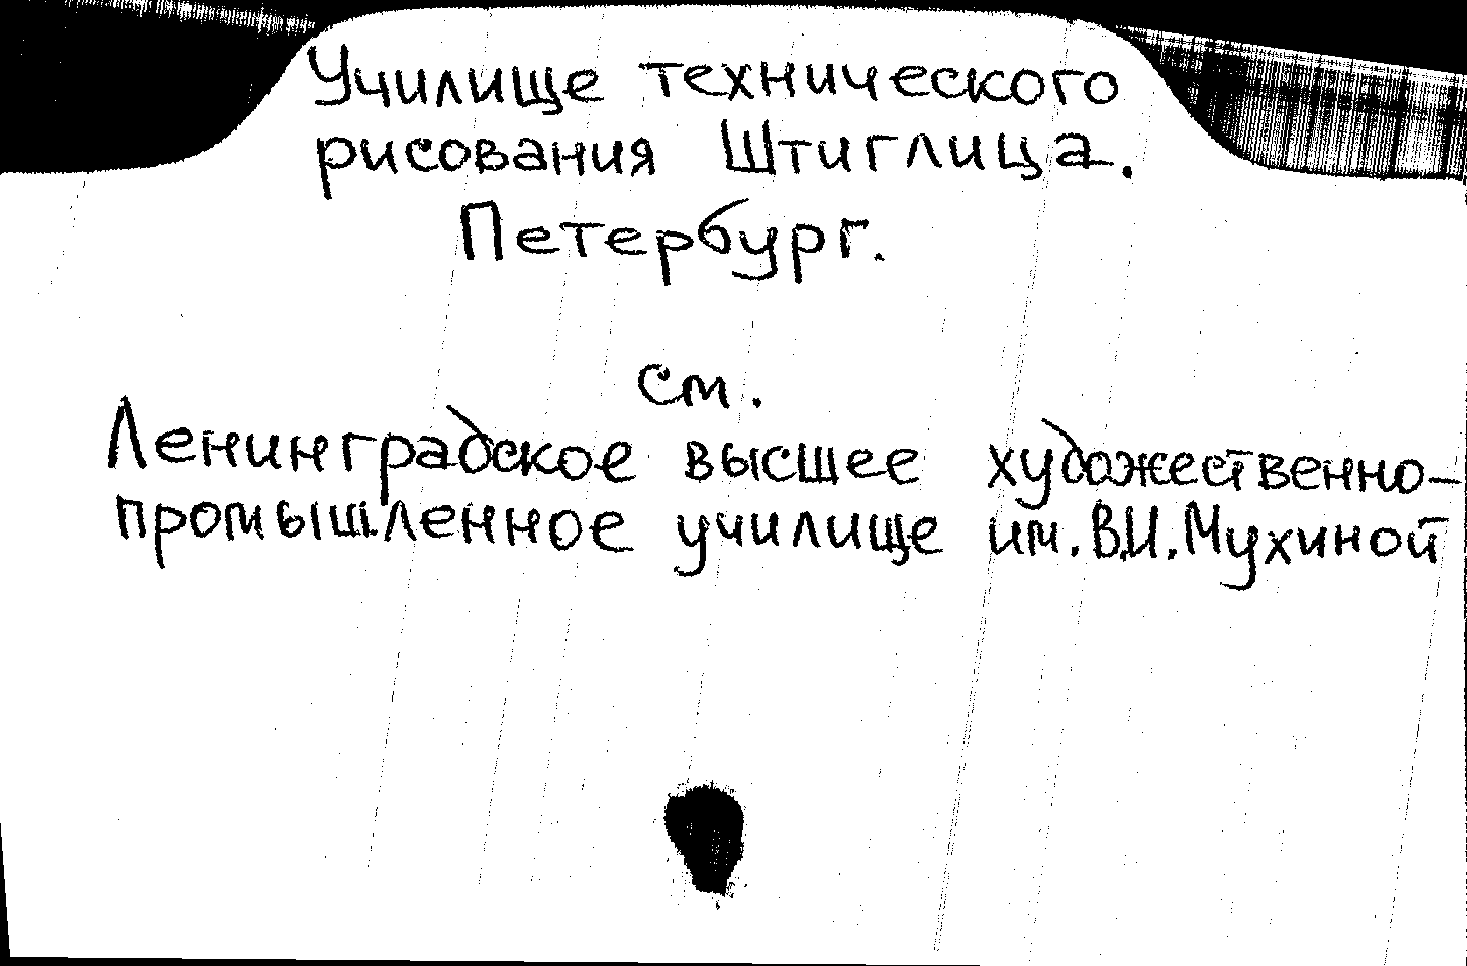 Училище технического
рисования Штиглица.
Петербург.
см.
Ленинградское высшее художественно-
промышленное училище им. В.И. Мухиной